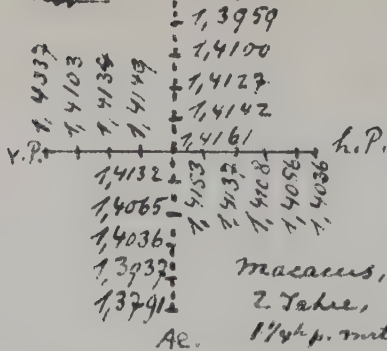 1,3959
1,4100
1,4127
1,4142
1,4161
1,4337
1,4103
1,4134
1,4149
v.P.
h.P.
1,4132
1,4065
1,4036
1,3937
1,3791
1,4153
1,4137
1,4108
1,4056
1,4036
Macacus,
2 Jahre,
p. mort
Ae.